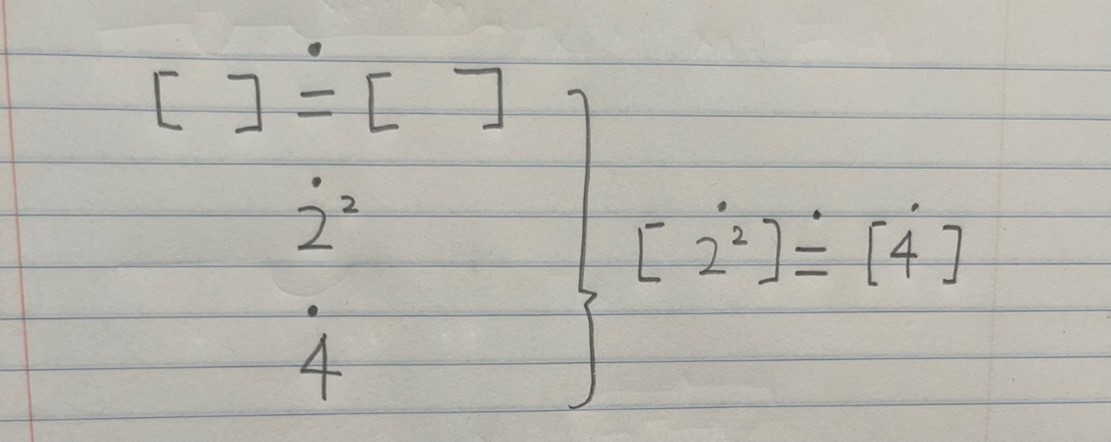 [ ] ≐ [ ]
2̇²
4̇
[ 2̇² ] ≐ [ 4̇ ]